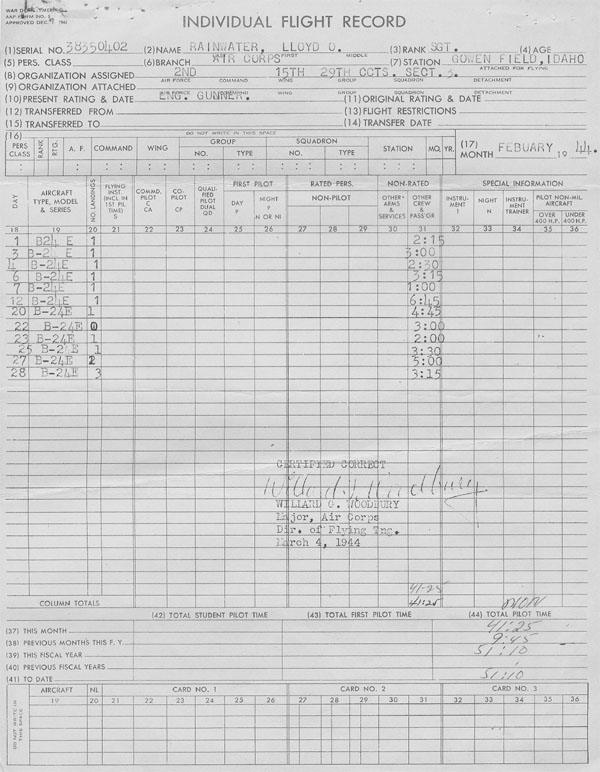 WAR DEPARTMENT
AAF FORM NO. 5
APPROVED DEC. 7, 1942
INDIVIDUAL FLIGHT RECORD
(1) SERIAL NO. 38350402 (2) NAME RAINWATER, LLOYD O. (3) RANK SGT. (4) AGE
LAST FIRST MIDDLE
(5) PERS. CLASS (6) BRANCH AIR CORPS (7) STATION GOWEN FIELD, IDAHO
(8) ORGANIZATION ASSIGNED 2ND 15TH 29TH CCTS. SECT. 3. ATTACHED FOR FLYING
AIR FORCE COMMAND WING GROUP SQUADRON DETACHMENT
(9) ORGANIZATION ATTACHED
AIR FORCE COMMAND WING GROUP SQUADRON DETACHMENT
(10) PRESENT RATING & DATE ENG. GUNNER. (11) ORIGINAL RATING & DATE
(12) TRANSFERRED FROM (13) FLIGHT RESTRICTIONS
(15) TRANSFERRED TO (14) TRANSFER DATE
(16) DO NOT WRITE IN THIS SPACE
PERS CLASS RANK RTG. A. F. COMMAND WING GROUP NO. TYPE SQUADRON NO. TYPE STATION MO. YR. (17) MONTH FEBUARY 19 44.
DAY AIRCRAFT TYPE, MODEL & SERIES NO. LANDINGS FLYING INST. (INCL. IN 1ST PIL. TIME) S COMMD. PILOT C CA CO-PILOT CP QUALI-FIED PILOT DUAL QD FIRST PILOT DAY P NIGHT P N OR NI RATED PERS. NON-PILOT NON-RATED OTHER ARMS & SERVICES OTHER CREW & PASS'GR SPECIAL INFORMATION INSTRU-MENT I NIGHT N INSTRU-MENT TRAINER PILOT NON-MIL. AIRCRAFT OVER 400 H.P. UNDER 400 H.P.
18 19 20 21 22 23 24 25 26 27 28 29 30 31 32 33 34 35 36
1 B24 E 1 2:15
3 B-24 E 1 3:00
4 B-24E 1 2:30
6 B-24E 1 3:15
7 B-24E 1 1:00
12 B-24E 1 6:45
20 B-24E 1 4:45
22 B-24E 0 3:00
23 B-24E 1 2:00
25 B-24E 1 3:30
27 B-24E 2 5:00
28 B-24E 3 3:15
CERTIFIED CORRECT
Willard G. Woodbury
WILLARD G. WOODBURY
Major, Air Corps
Dir. of Flying Tng.
March 4, 1944
41-25
COLUMN TOTALS 41:25
(42) TOTAL STUDENT PILOT TIME (43) TOTAL FIRST PILOT TIME (44) TOTAL PILOT TIME
NON
(37) THIS MONTH 41:25
(38) PREVIOUS MONTHS THIS F. Y. 9:45
(39) THIS FISCAL YEAR 51:10
(40) PREVIOUS FISCAL YEARS
(41) TO DATE 51:10
DO NOT WRITE IN THIS SPACE
AIRCRAFT NL CARD NO. 1 CARD NO. 2 CARD NO. 3
19 20 21 22 23 24 25 26 27 28 29 30 31 32 33 34 35 36